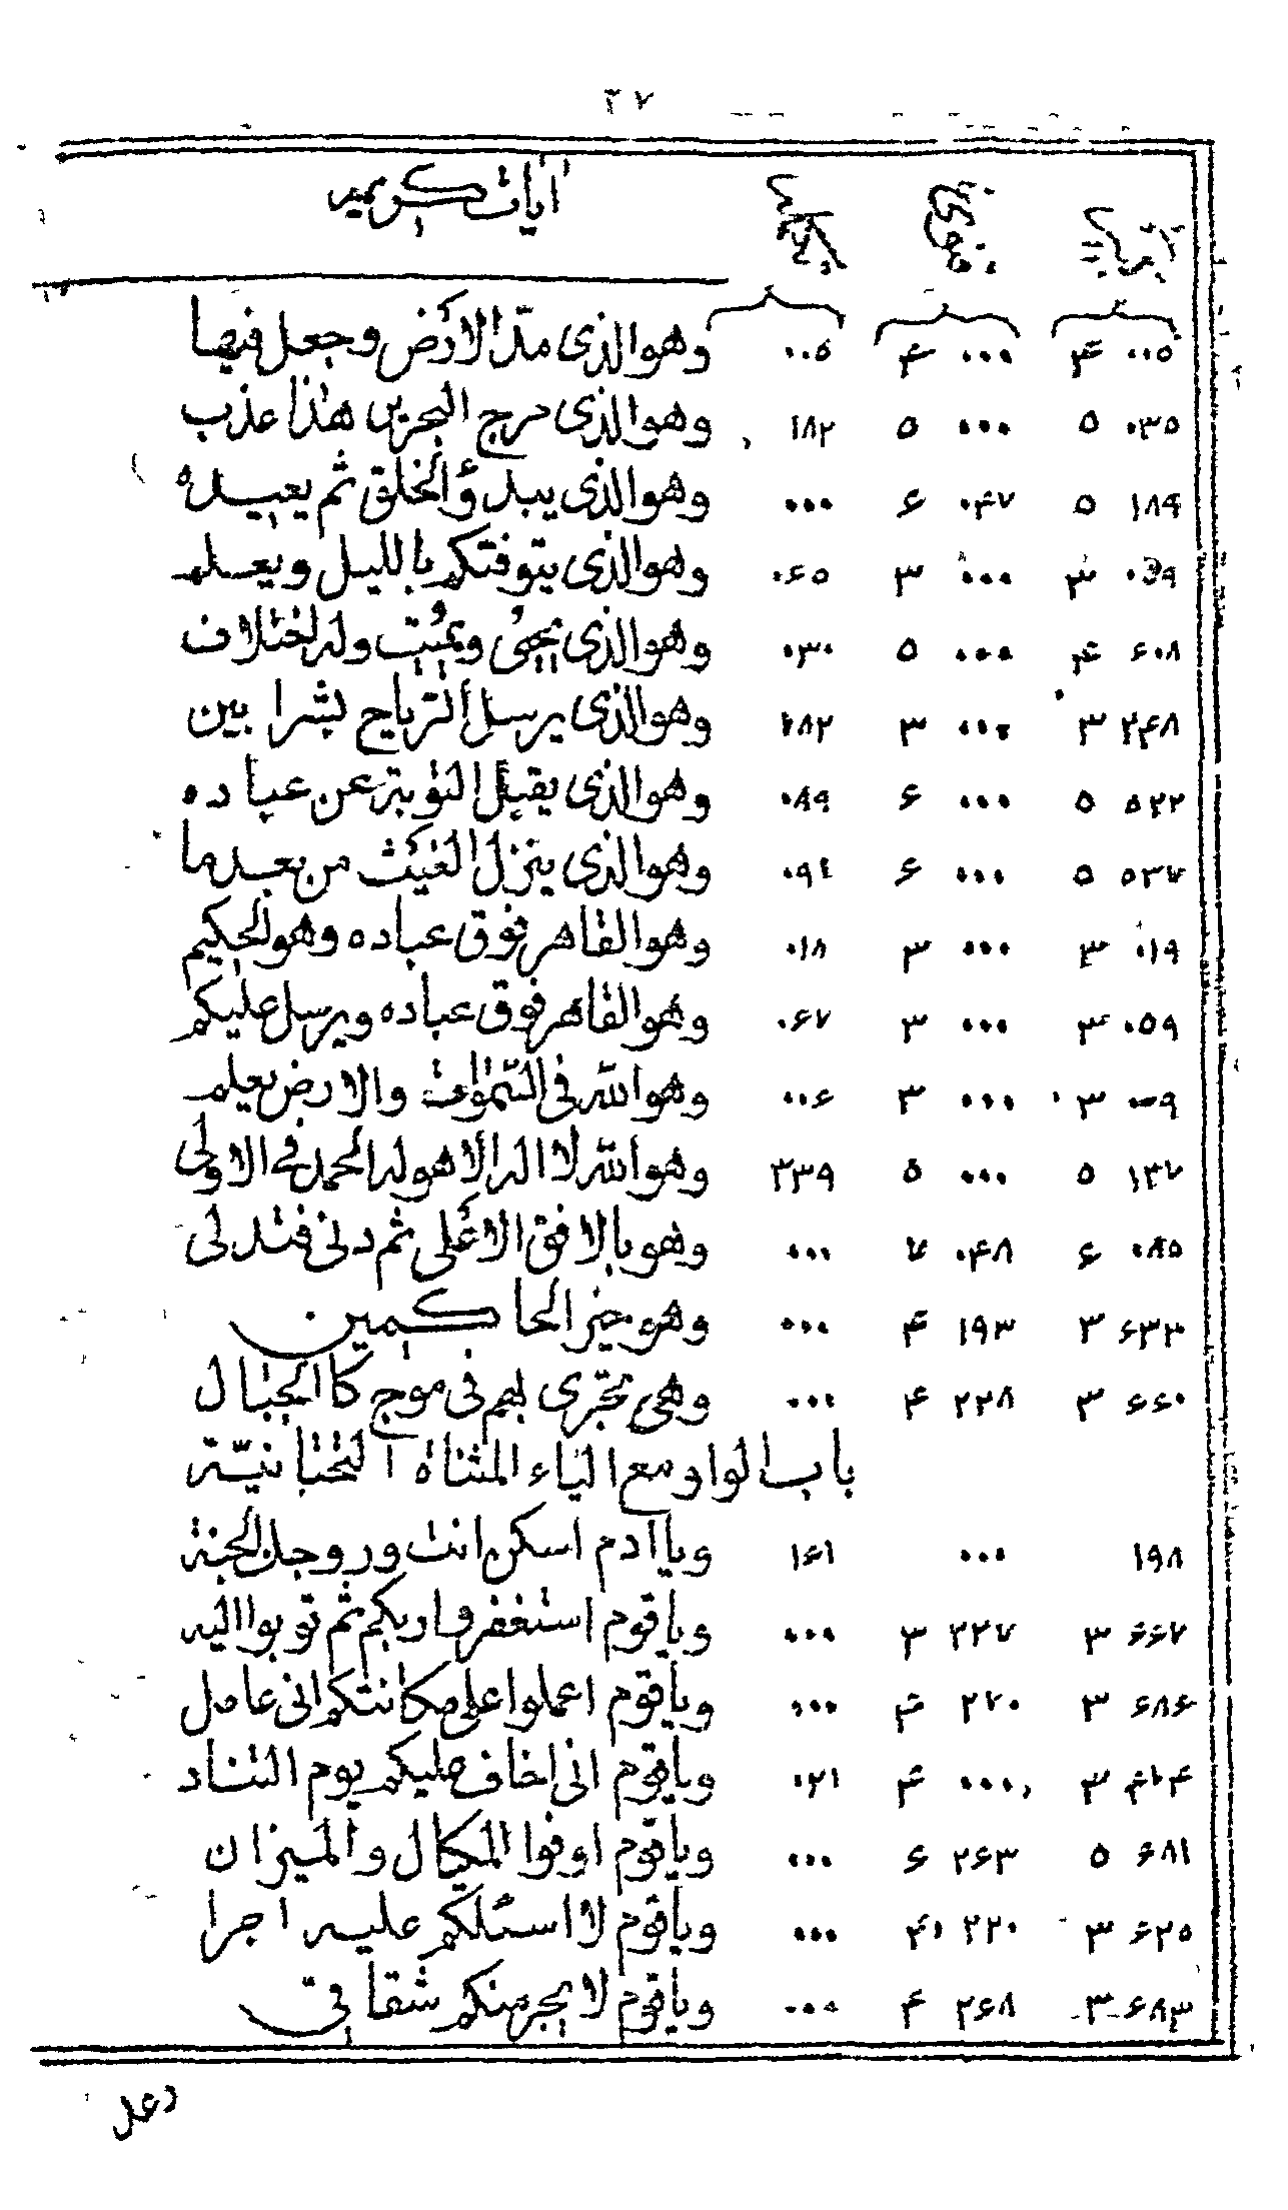 ٣٧
آيات كريمه
٠٠٥ ۴ ٠٠٠ ۴ ٠٠٥ وهوالذى مدّ الارض وجعل فيها
٠٣٥ ٥ ٠٠٠ ٥ ١٨٢ وهوالذى مرج البحرين هذا عذب
١٨٩ ٥ ٠۴٧ ۶ ٠٠٠ وهوالذى يبدؤالخلق ثم يعيده
٣ ٠٠٠ ٣ ٠۶٥ وهوالذى يتوفتكم بالليل ويعلم
۶٠٨ ۴ ٠٠٠ ٥ ٠٣٠ وهوالذى يحيى ويميت وله اختلاف
٢۴٨ ٣ ٠٠٠ ٣ ٢٨٢ وهوالذى يرسل الرياح بشرا بين
٥٢٢ ٥ ٠٠٠ ۶ ٠٨٩ وهوالذى يقبل التوبة عن عباده
٥٣٧ ٥ ٠٠٠ ۶ ٠٩٤ وهوالذى ينزل الغيث من بعد ما
٠١٩ ٣ ٠٠٠ ٣ ٠١٨ وهوالقاهر فوق عباده وهوالحكيم
٠٥٩ ٣ ٠٠٠ ٣ ٠۶٧ وهوالقاهر فوق عباده ويرسل عليكم
٠٠٩ ٣ ٠٠٠ ٣ ٠٠۶ وهوالله فى السموات والارض يعلم
١٣٧ ٥ ٠٠٠ ٥ ٣٣٩ وهوالله لا اله الا هو له الحمد فى الاولى
٠٨٥ ۶ ٠۴٨ ٧ ٠٠٠ وهو بالافق الاعلى ثم دنى فتدلى
۶٣٣ ٣ ١٩٣ ۴ ٠٠٠ وهو خير الحاكمين
۶۶٠ ٣ ٢٢٨ ۴ ٠٠٠ وهى تجرى بهم فى موج كالجبال
باب الواو مع الياء المثناة التحتانيّة
١٩٨ ٠٠٠ ١۶١ وياادم اسكن انت وزوجك الجنة
۶۶٧ ٣ ٢٣٧ ٣ ٠٠٠ وياقوم استغفروا ربكم ثم توبوا اليه
۶٨۶ ٣ ٢٧٠ ۴ ٠٠٠ وياقوم اعملوا على مكانتكم انى عامل
٣ ٠٠٠ ۴ ٠٢١ وياقوم انى اخاف عليكم يوم التناد
۶٨١ ٥ ٢۶٣ ۶ ٠٠٠ وياقوم اوفوا المكيال والميزان
۶٢٥ ٣ ٢٢٠ ۴ ٠٠٠ وياقوم لا اسئلكم عليه اجرا
۶٨٣ ٣ ٢۶٨ ۴ ٠٠٠ وياقوم لا يجرمنكم شقاقى